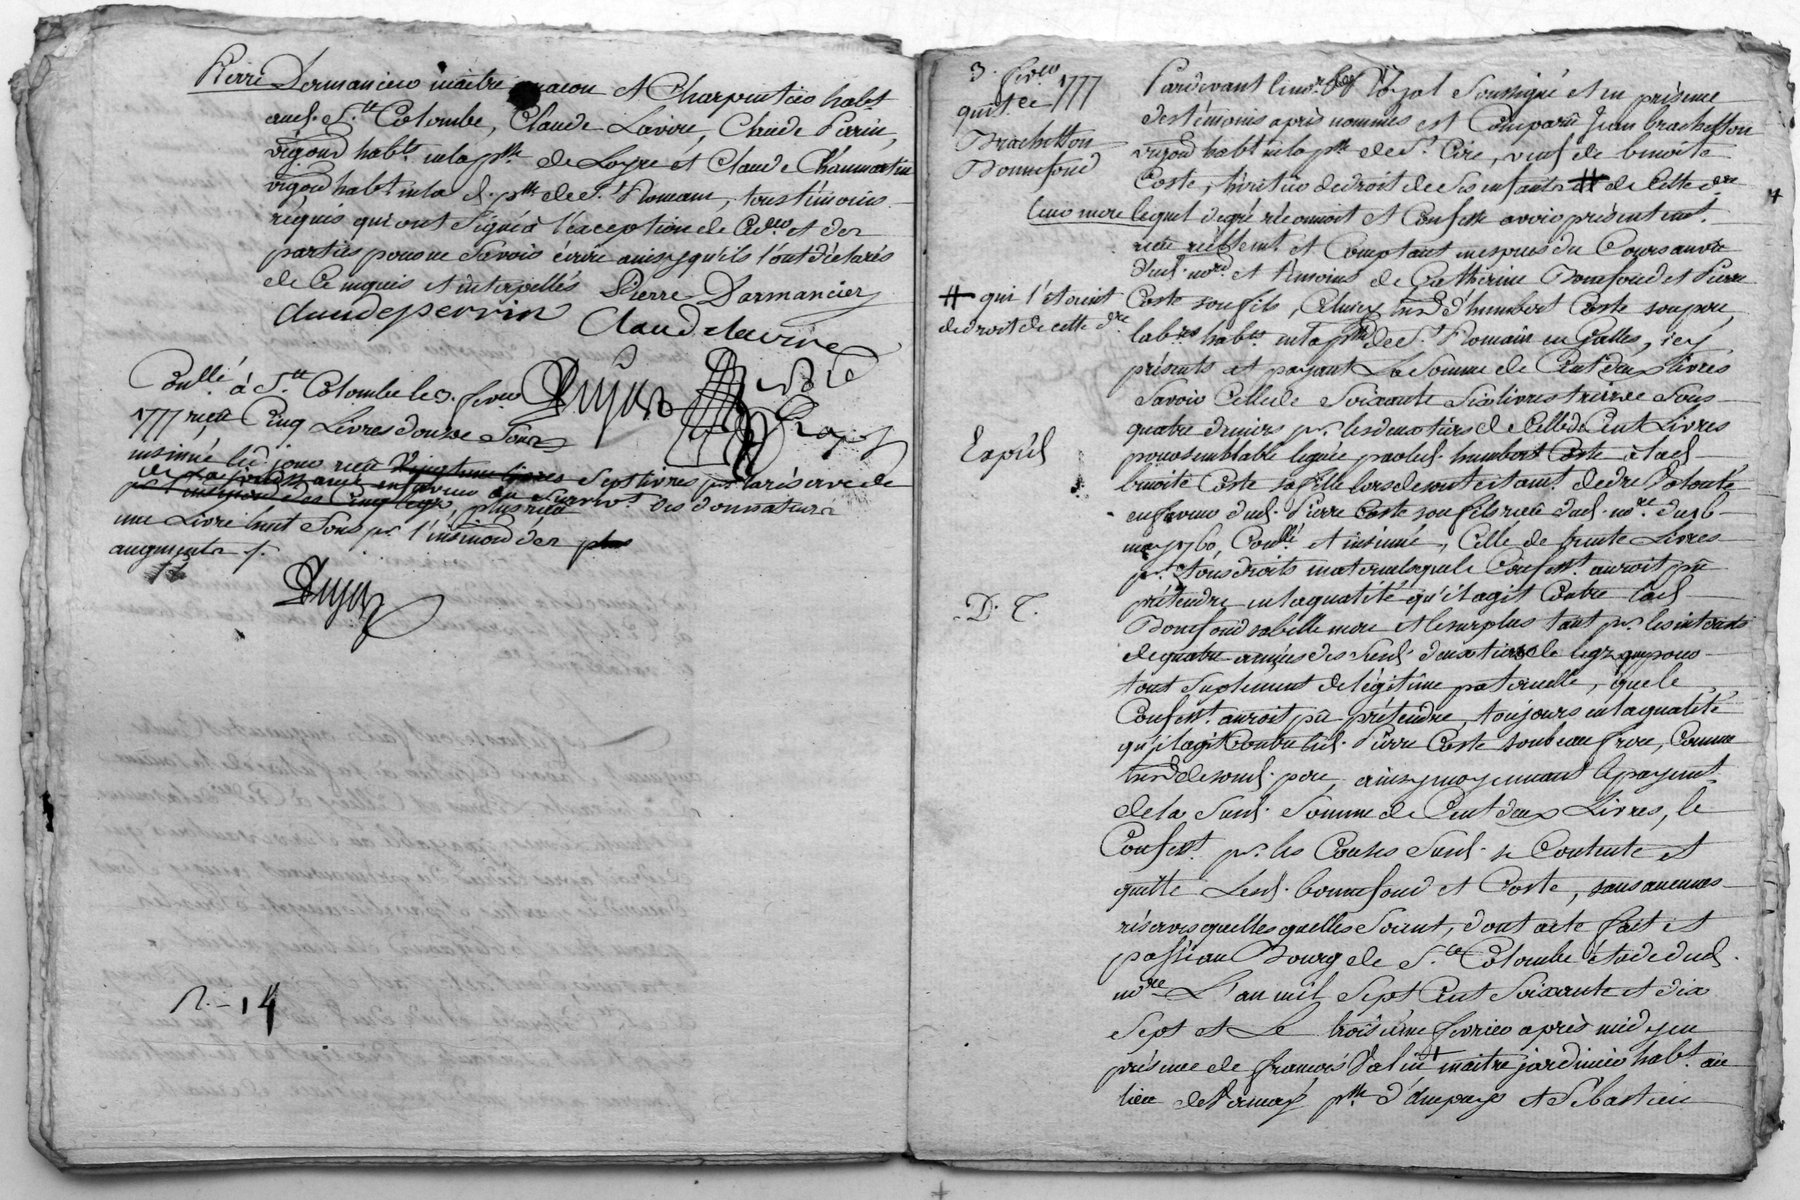 Pierre Dormancieu maitre macon et Charpentier habt
aud. Ste Colombe, Claude Lavire, Claude Perrin,
vigon habt en la psse de Loyre et Claude Chaumartin
vigon habt en la d. psse de St Romain, tous témoins
requis qui ont signé à l'éxception de et des
parties pour ne savoir écrire ainsy qu'ils l'ont déclarés
de ce enquis et interpellés Pierre Darmancier
claude perrin
Claude lavire
Dujas
Conllé à Ste Colombe le 3. fevrier
1777 reçu Cinq Livres douze Sous
insinué led. jour reçu sept livres pr la réserve de
des donnataires
une Livre huit Sous pr l'insinuon des
augments /.
Dujas
n.-14
3. fevrier 1777
quitce
Brachetton
Bonnefond
Pardevant le nore Royal Soussigné et en présence
des témoins après nommés est Comparu Jean brachetton
vigon habt en la psse de St Cire, veuf de benoite
Coste, héritier de droit de ses enfants # de cette dre
leur mere lequel de gré réconnoit et Confesse avoir présentemt
reçu réellemt et Comptant en espèces du Cours au vu
dud. nore et témoins de Catherine Bonnefond et Pierre
# qui l'étoient
de droit de cette dre
Coste son fils, Celuicy hér. d'humbert Coste son pere,
labrs habts en la psse de St Romain en Galles, icy
présents et payant La Somme de Cent deux Livres
Savoir Celle de Soixante Six livres treize Sous
quatre deniers pr les deux tiers de Celle de Cent Livres
Expéd.
pour semblable leguée par led. humbert Coste à lad.
benoite Coste sa fille lors de son testamt de dre volonté
en faveur dud. Pierre Coste son fils reçu dud. nore du 16
may 1760, Conllé et insinué, Celle de trente Livres
pr tous droits maternels que le Confesst auroit pû
D. T.
prétendre en la qualité qu'il agit Contre lad.
Bonnefond sa belle mere et le surplus tant pr les interets
de quatre années des susd. deux tiers de legs que pour
tout suplement de légitime paternelle, que le
Confesst auroit pû prétendre, toujours en la qualité
qu'il agit Contre led. Pierre Coste son beau frere, Comme
hér. de son d. pere, ainsy moyennant le payemt
de la susd. Somme de Cent deux Livres, le
Confesst pr les Causes susd. se Contente et
quitte Lesd. bonnefond et Coste, sans aucunes
réserves quelles quelles soient, dont acte fait et
passé au Bourg de Ste Colombe étude dud.
nore L'an mil Sept Cent Soixante et dix
Sept et Le troisième fevrier après midy en
présence de francois Valin maitre jardinier habt au
lieu de Verenay psse d'ampuys et Sébastien